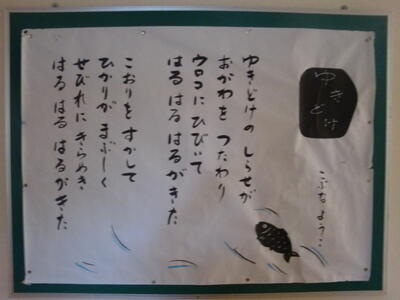 ゆきどけ
こぶなようこ
ゆきどけの しらせが
おがわを つたわり
ウロコに ひびいて
はる はる はるがきた
こおりを すかして
ひかりが まぶしく
せびれに きらめき
はる はる はるがきた